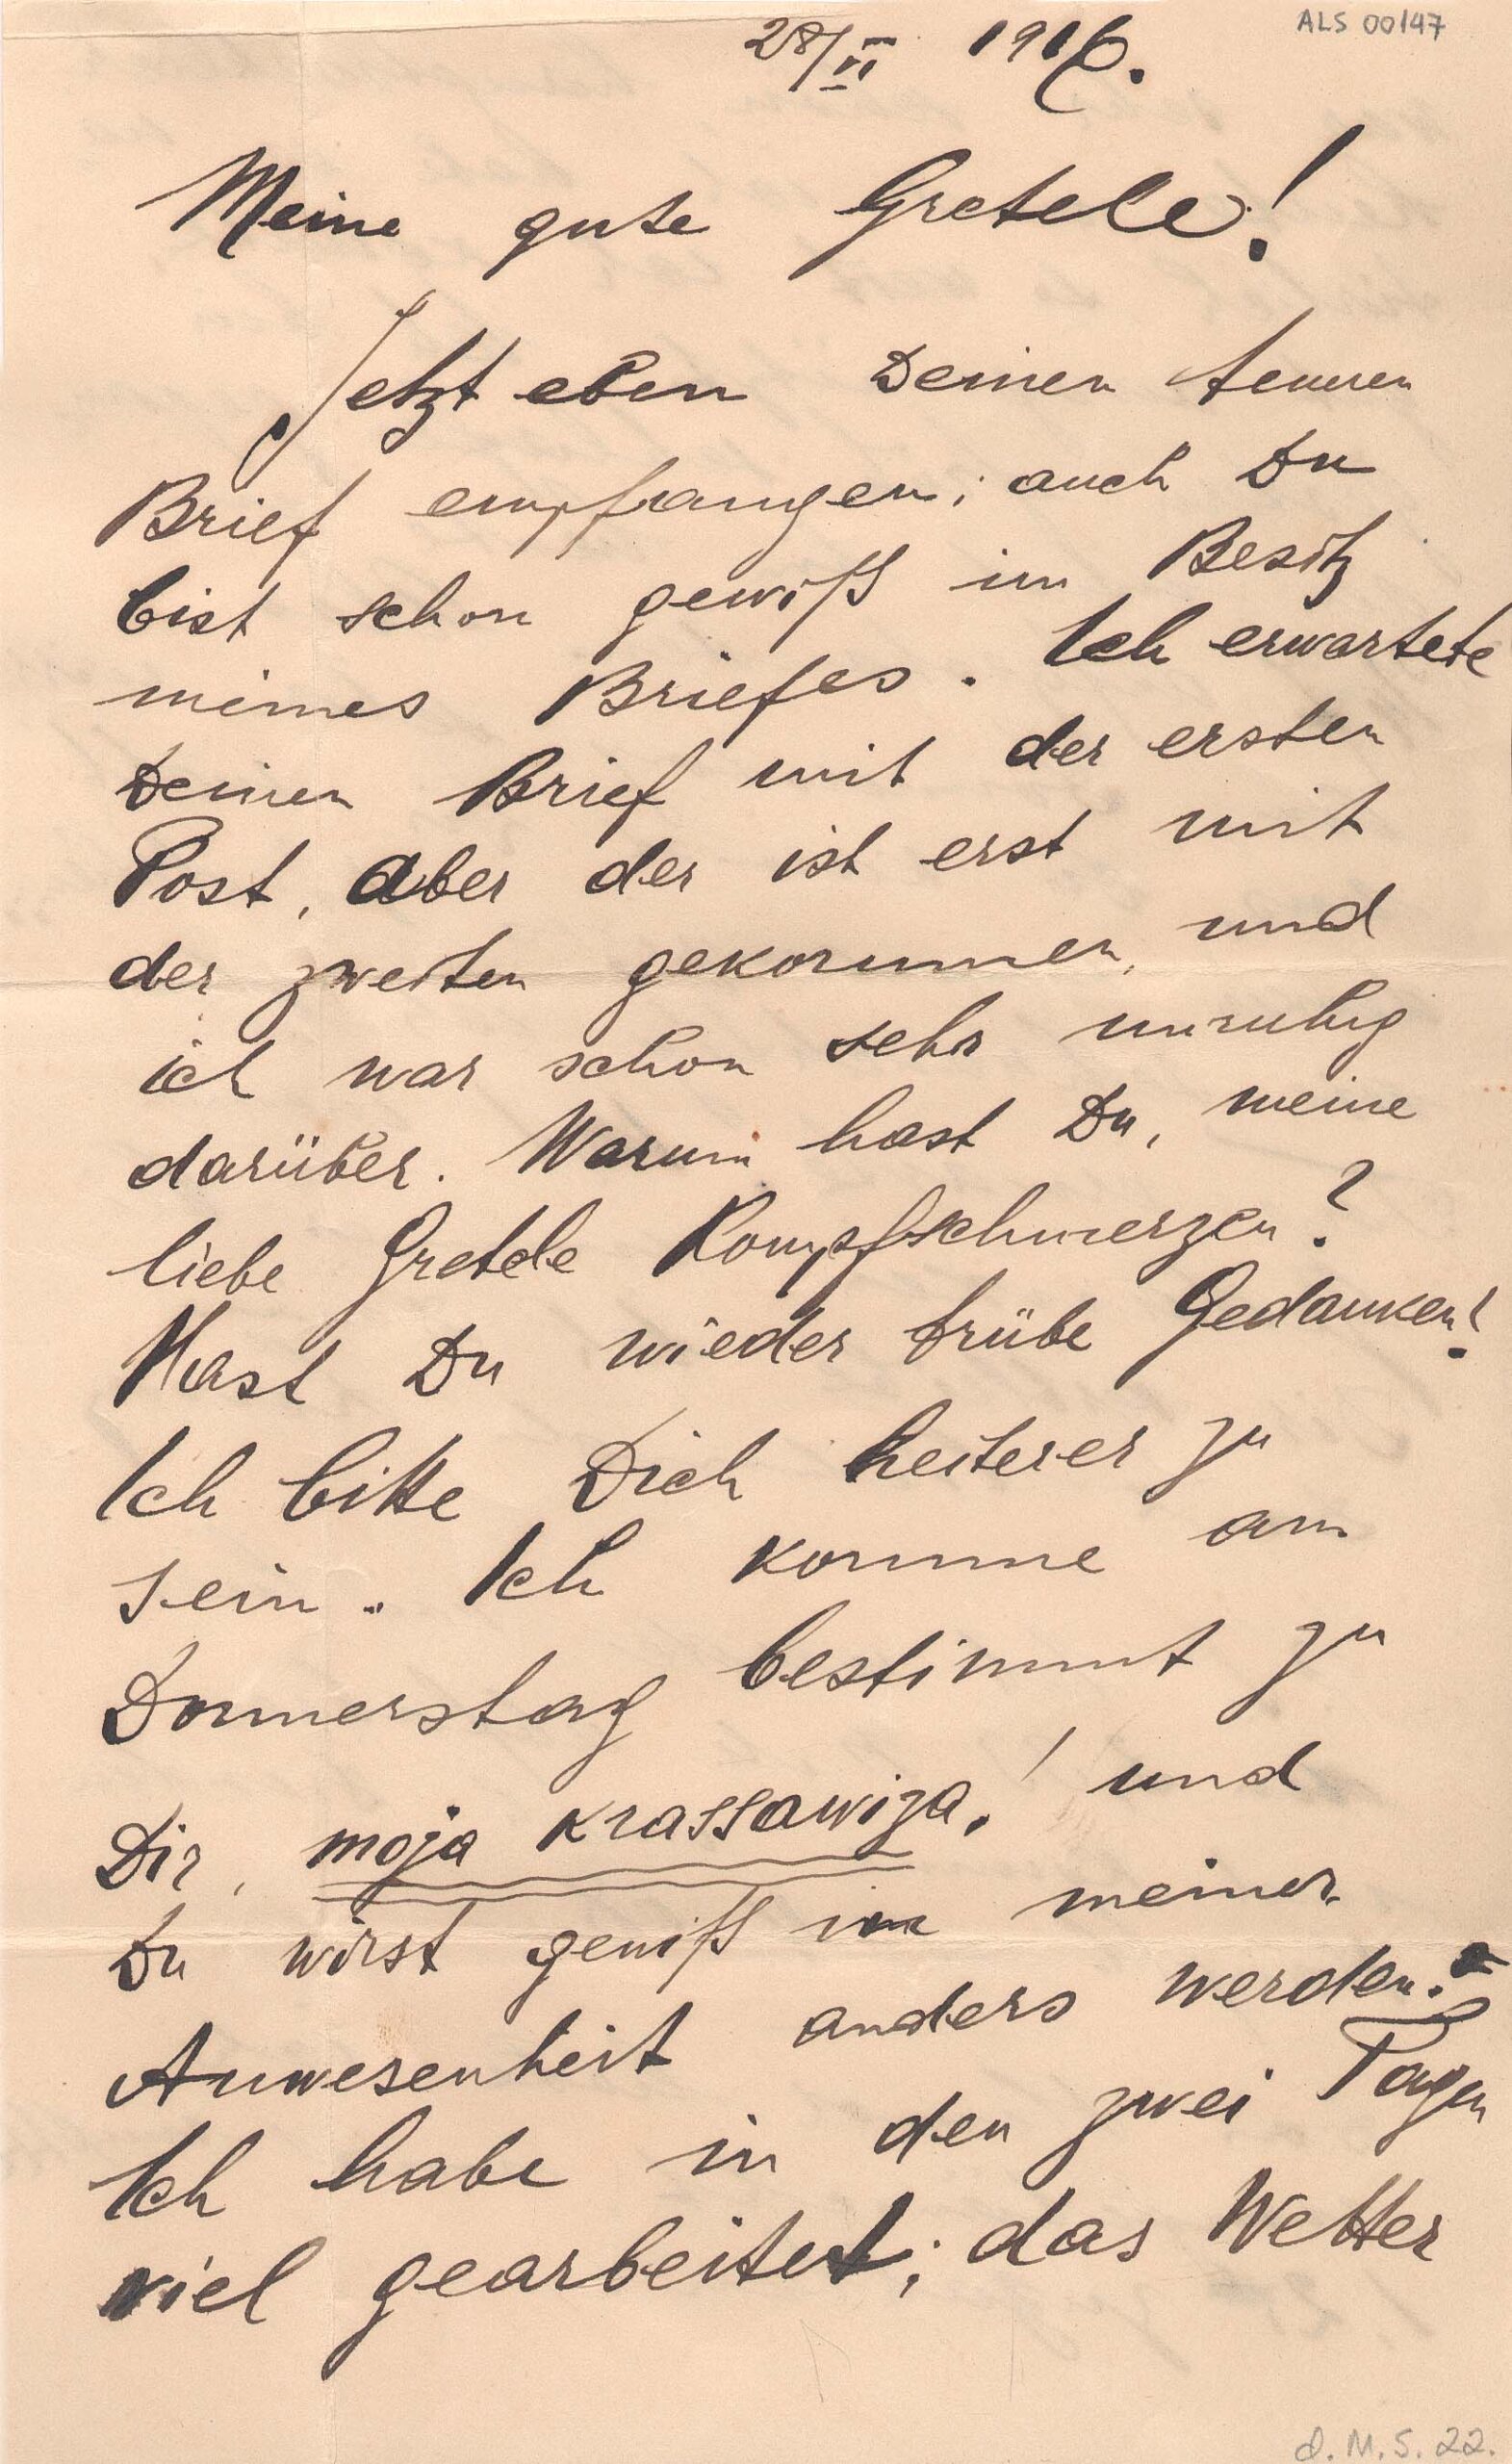 ALS 00147
28/VI 1916.
Meine gute Gretele!
Jetzt eben Deinen teueren
Brief empfangen; auch Du
bist schon gewiß im Besitz
meines Briefes. Ich erwartete
Deinen Brief mit der ersten
Post, aber der ist erst mit
der zweiten gekommen, und
ich war schon sehr unruhig
darüber. Warum hast Du, meine
liebe Gretele Kompfschmerzen?
Hast Du wieder trübe Gedanken!
Ich bitte Dich heiterer zu
sein. Ich komme am
Donnerstag bestimmt zu
Dir, moja krassawiza! und
Du wirst gewiß in meiner
Anwesenheit anders werden.
Ich habe in den zwei Tagen
viel gearbeitet; das Wetter
d. M. S. 22.